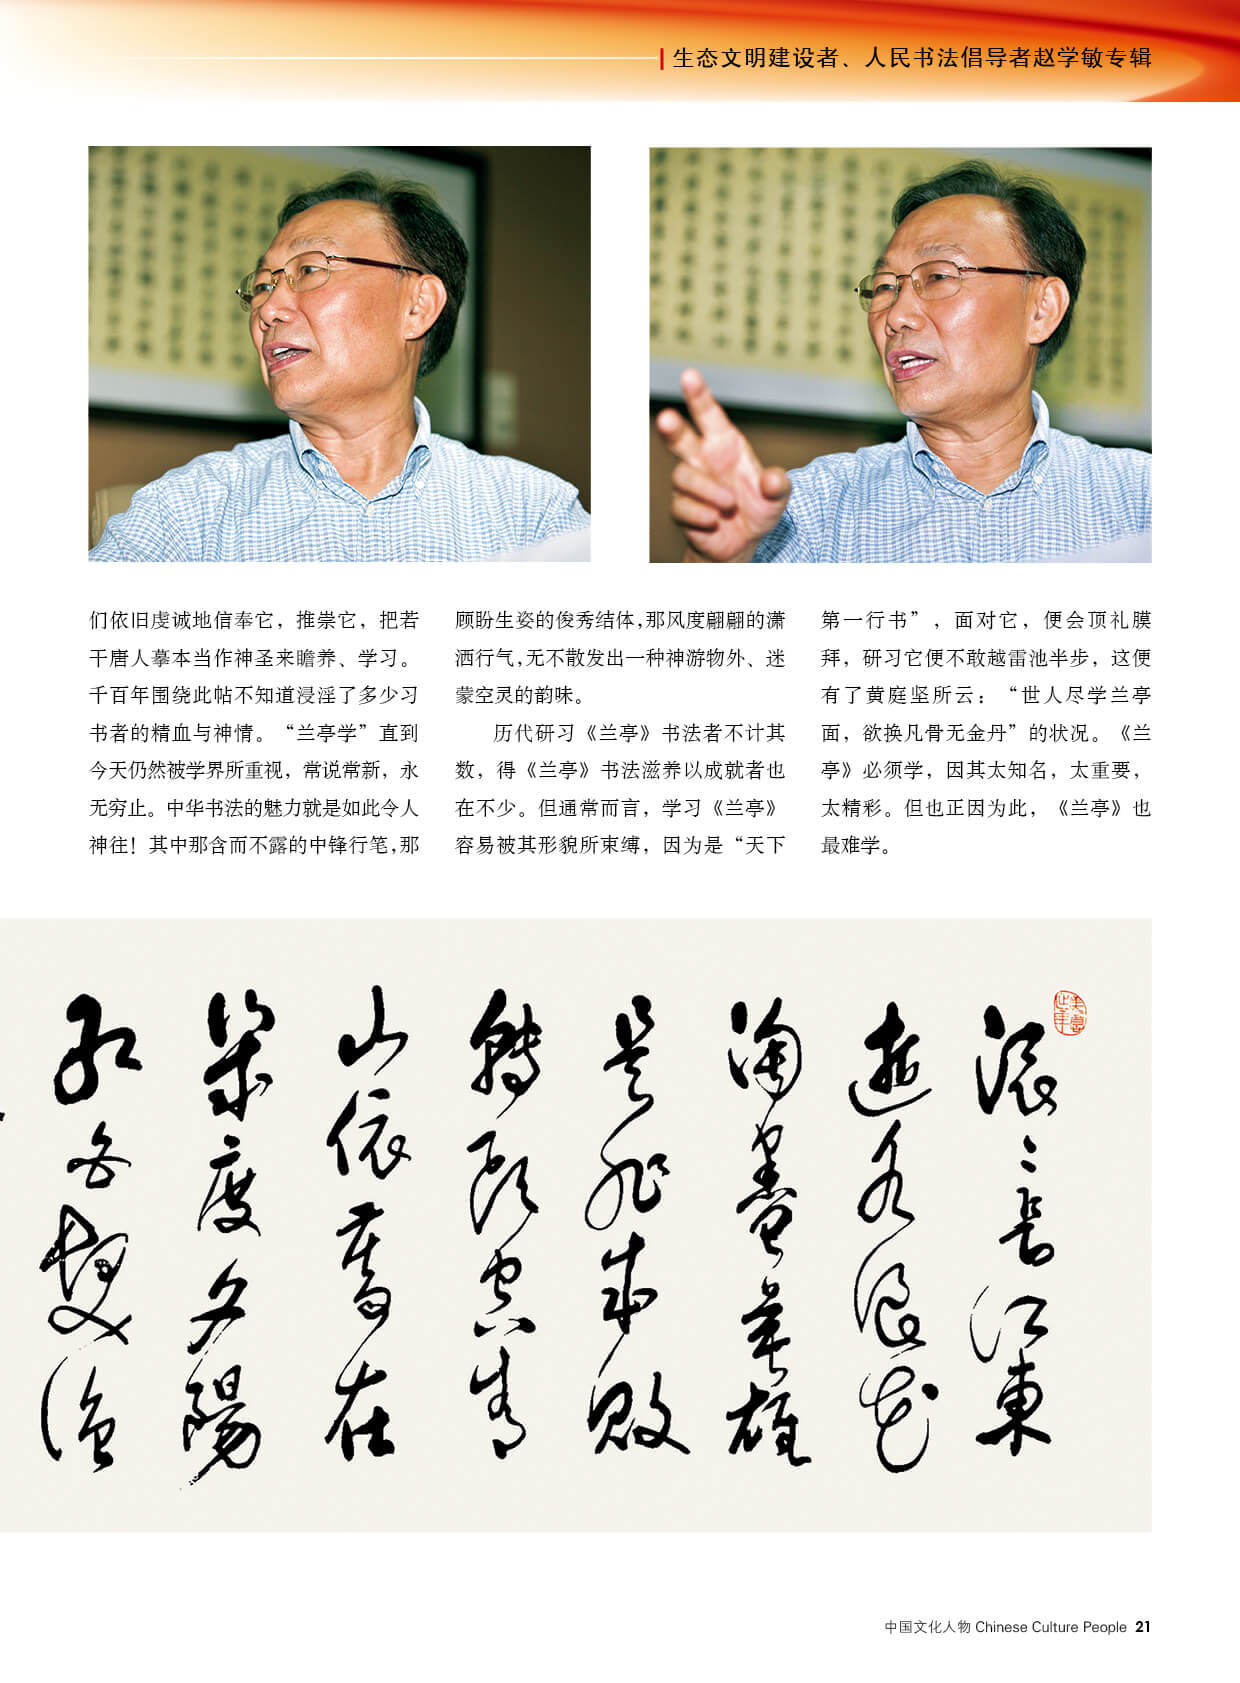 生态文明建设者、人民书法倡导者赵学敏专辑
们依旧虔诚地信奉它，推崇它，把若
干唐人摹本当作神圣来瞻养、学习。
千百年围绕此帖不知道浸淫了多少习
书者的精血与神情。“兰亭学”直到
今天仍然被学界所重视，常说常新，永
无穷止。中华书法的魅力就是如此令人
神往！其中那含而不露的中锋行笔，那
顾盼生姿的俊秀结体，那风度翩翩的潇
洒行气，无不散发出一种神游物外、迷
蒙空灵的韵味。
历代研习《兰亭》书法者不计其
数，得《兰亭》书法滋养以成就者也
在不少。但通常而言，学习《兰亭》
容易被其形貌所束缚，因为是“天下
第一行书”，面对它，便会顶礼膜
拜，研习它便不敢越雷池半步，这便
有了黄庭坚所云：“世人尽学兰亭
面，欲换凡骨无金丹”的状况。《兰
亭》必须学，因其太知名，太重要，
太精彩。但也正因为此，《兰亭》也
最难学。
滚〻長江東
逝水浪花
淘盡英雄
是非成敗
轉頭空青
山依舊在
幾度夕陽
紅白髮漁
中国文化人物 Chinese Culture People 21